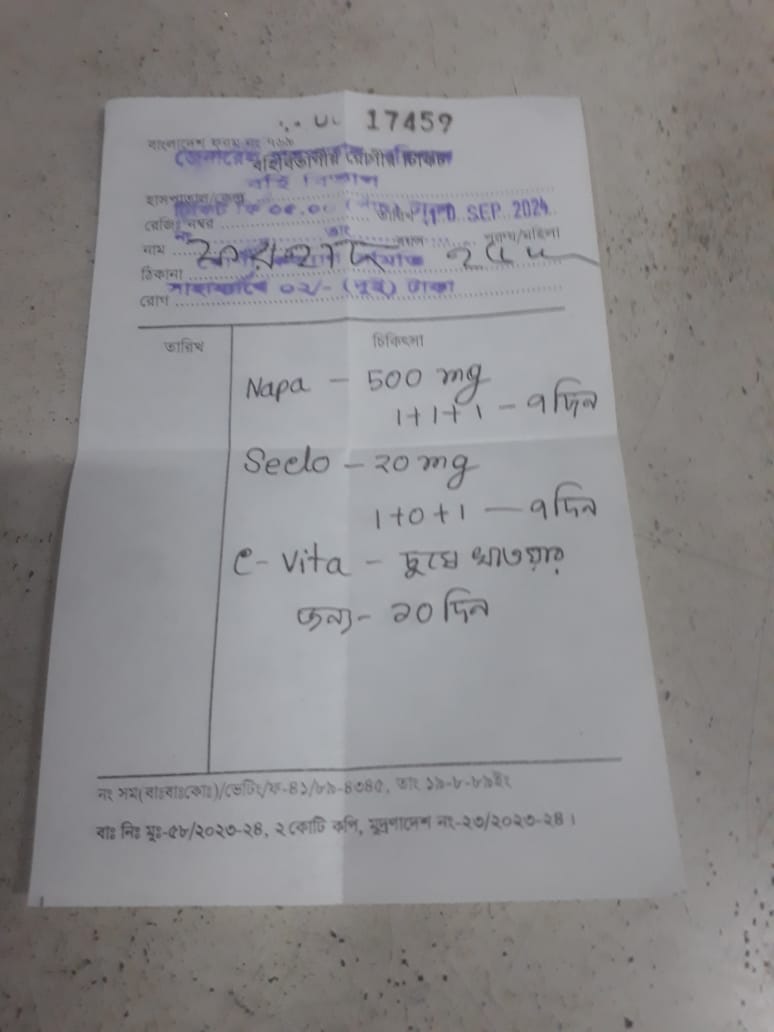 17459
বাংলাদেশ ফরম নং
বহির্বিভাগীয় রোগীর টিকিট
হাসপাতাল/কেন্দ্র
রেজিঃ নম্বর SEP. 2024
নাম বয়স পুরুষ/মহিলা
ঠিকানা
রোগ ০২/- (দুই) টাকা
তারিখ চিকিৎসা
Napa – 500 mg
1+1+1 – ৭ দিন
Seclo – 20 mg
1+0+1 – ৭ দিন
C-Vita – চুষে খাওয়ার
জন্য – ২০ দিন
নং সম(বাঃবাঃকোঃ)/ভেটিং/ফ-৪১/৮৯-৪৩৪৫, তাং ১৯-৮-৮৯ইং
বাঃ নিঃ মুঃ-৫৮/২০২৩-২৪, ২ কোটি কপি, মুদ্রণাদেশ নং-২৩/২০২৩-২৪।